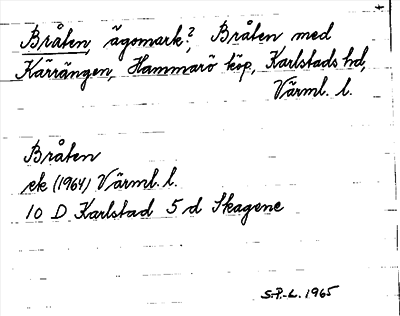 Bråten, ägomark?, Bråten med
Kärrängen, Hammarö köp, Karlstads hd,
Värml. l.
Bråten
ek (1964) Värml. l.
10 D Karlstad 5 d Skagene
S.P.-L. 1965